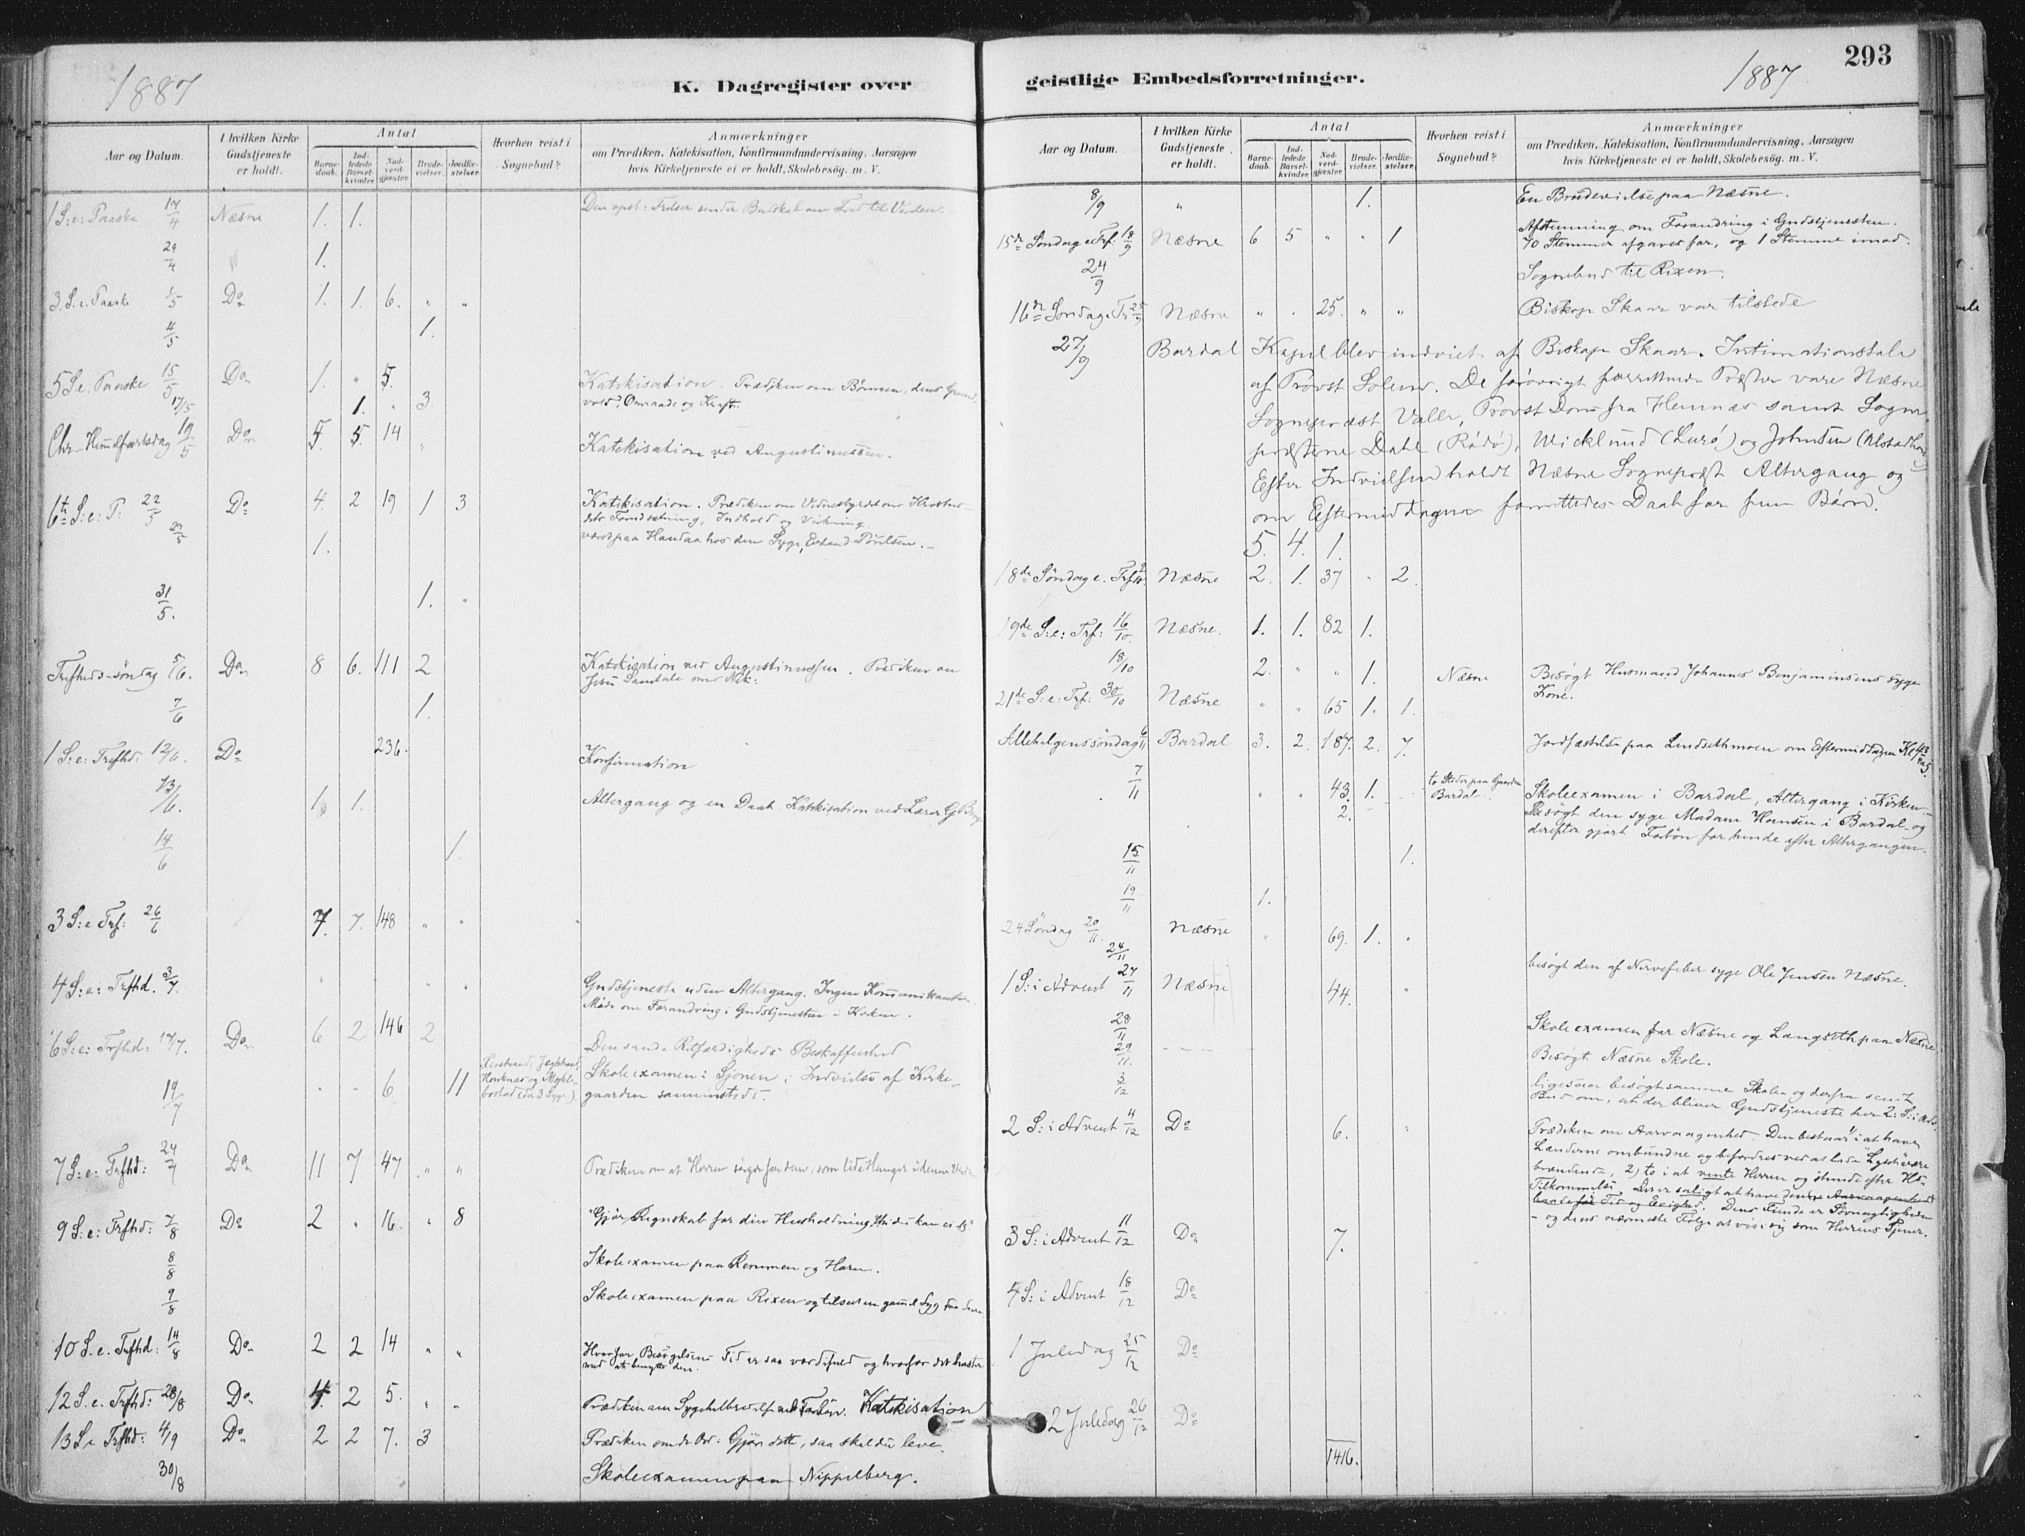 1887
K. Dagregister over
Aar og Datum.
I hvilken Kirke Gudstjeneste er holdt.
Antal
Barne-daab.
Ind-ledede Barsel-kvinder.
Nad-verd-gjester.
Brude-vielser.
Jordfæ-stelser.
Hvorhen reist i Sognebud?
Anmærkninger
om Prædiken, Katekisation, Konfirmandundervisning, Aarsagen
hvis Kirketjeneste ei er holdt, Skolebesøg. m. V.
1 S: e: Paaske 17/4 Næsne 1. 1.
24/4 1.
3 S. e. Paaske 1/5 Do 1. 1. 6. " "
4/5 1.
5 S. e. Paaske 15/5 Do 1. " 5. Katekisation. Prædiken om Bønnen, dens Grund
17/5 1. " 3. vold, Omraade og Kraft.
Chr. Himmelfartsdag 19/5 Do 5 5 14 " Katekisation ved Augustinussen.
6te S: e: P: 22/5 Do 4. 2 19 1 3 Katekisation. Prædiken om Vidnesbyrdet om Kristus
dets Forudsætning, Indhold og Virkning.
1. været paa Handaa hos den Syge,
31/5. 1. "
Trefheds-søndag 5/6. Do 8 6. 111 2 Katekisation ved Augustinussen. Prædiken om
Jesu Samtale med Nik:
7/6 1.
1 S: e: Trefhd: 12/6. Do 236. Konfirmation
13/6. 1 1. Altergang og en Daab. Katekisation ved Lærer
14/6 1.
3 S: e Trf: 26/6 7. 7. 148 " "
4 S: e: Trfhd. 3/7. " " " Gudstjeneste uden Altergang. Ingen Kommunikanter.
Møde om Forandring i Gudstjenesten i Kirken.
6 S: e: Trfhd: 17/7. Do 6 2 146 2 Den sande Retfærdigheds Beskaffenhed
19/7 " " 6. 11 Skoleexamen i Sjonen, Indvielse af Kirke-
gaarden sammesteds.
7 S: e: Trfhd: 24/7 Do 11 7 47 " " Prædiken om at Herren sørger for dem, som lide Hunger i denne Verden
9 S: e: Trfhd: 7/8 Do 2 " 16. " 8 "Gjør Regnskab for din Husholdning,
8/8 Skoleexamen paa Remmen og Havn.
9/8 Skoleexamen paa Rixen og
10 S. e. Trfhd: 14/8 Do 2 2 14 " " Hvorfor Besøgelsens Tid er saa værdifuld og hvorfor det haster
med at benytte den.
12 S. e. Trfhd: 28/8 Do 4. 2 5. " " Prædiken om Katekisation
13 S. e Trfhd: 4/9 Do 2 2 7. 3 Prædiken om de Ord: Gjør dette, saa skal du leve.
30/8 Skoleexamen paa Nippelberg.
geistlige Embedsforretninger.
1887
293
Aar og Datum.
I hvilken Kirke Gudstjeneste er holdt.
Antal
Barne-daab.
Ind-ledede Barsel-kvinder.
Nad-verd-gjester.
Brude-vielser.
Jordfæ-stelser.
Hvorhen reist i Sognebud?
Anmærkninger
om Prædiken, Katekisation, Konfirmandundervisning, Aarsagen
hvis Kirketjeneste ei er holdt, Skolebesøg. m. V.
8/9 " 1. En Brudevielse paa Næsne.
15de Søndag e. Trf: 18/9 Næsne 6 5 " " 1 Afstemning om Forandring i Gudstjenesten.
70 Stemmer afgaves for, og 1 Stemme imod.
24/9 Sognebud til Rixen.
16de Søndag e. Tr 25/9 Næsne " " 25. " " Biskop Skaar var tilstede
27/9 Bardal Kapel blev indviet af Biskop Skaar. Intimationstale
af Provst Solem. De forøvrigt forrettende Præster vare Næsne
Sognepræst Valle, Provst Dom fra Hemnæs samt Sogne
præsterne Dahl (Rødø), Wicklund (Lurø) og Johnsen (Alstadhoug)
Efter Indvielsen holdt Næsne Sognepræst Altergang og
om Eftermiddagen forrettedes Daab for fem Børn.
5. 4. 1.
18de Søndag e. Trf Næsne 2. 1. 37 " 2.
19de S: e: Trf: 16/10. Næsne. 1. 1. 82 1.
18/10 2. " " 1. Næsne Besøgt Husmand Johannes Benjaminsens syge
Kone.
21de S: e: Trf: 30/10 Næsne " " 65 1. 1.
Allehelgenssøndag 6/11 Bardal 3. 2. 187. 2. 7. Jordfæstelse paa Lindsethmoen om Eftermiddagen Kl
7/11 " " 43. 1. to Steder paa Gaarden Bardal. Skoleexamen i Bardal, Altergang i Kirken
2. Besøgt den syge Madam Hansen i Bardal og
derefter gjort Forbøn for hende efter Altergangen.
15/11 1.
19/11 1.
24 Søndag 20/11. Næsne " 69. 1. "
24/11 besøgt den af Nervefeber syge Ole Jensen Næsne.
1 S: i Advent 27/11 Næsne 44. "
28/11 Skoleexamen for Næsne og Langseth paa Næsne
29/11. Besøgt Næsne Skole.
3/12 ligesaa besøgt samme Skole og derfra sendt
Bud om, at der bliver Gudstjeneste her 2. S: i Adv.
2 S: i Advent 4/12 Do 6. " Prædiken om Aarvaagenhed. Den bestaar i at have
Lænderne ombundne og
brændende, 2) to i at vente Herren og stunde efter Hs
Tilkommelse,
Dens Fiende er Søvnagtigheden
- og dens nærmeste Følge at vise sig som Herrens Tjener.
3 S: i Advent 11/12 Do 7.
4 S: i Advent 18/12 Do
1 Juledag 25/12 Do
2 Juledag 26/12 Do
1416.